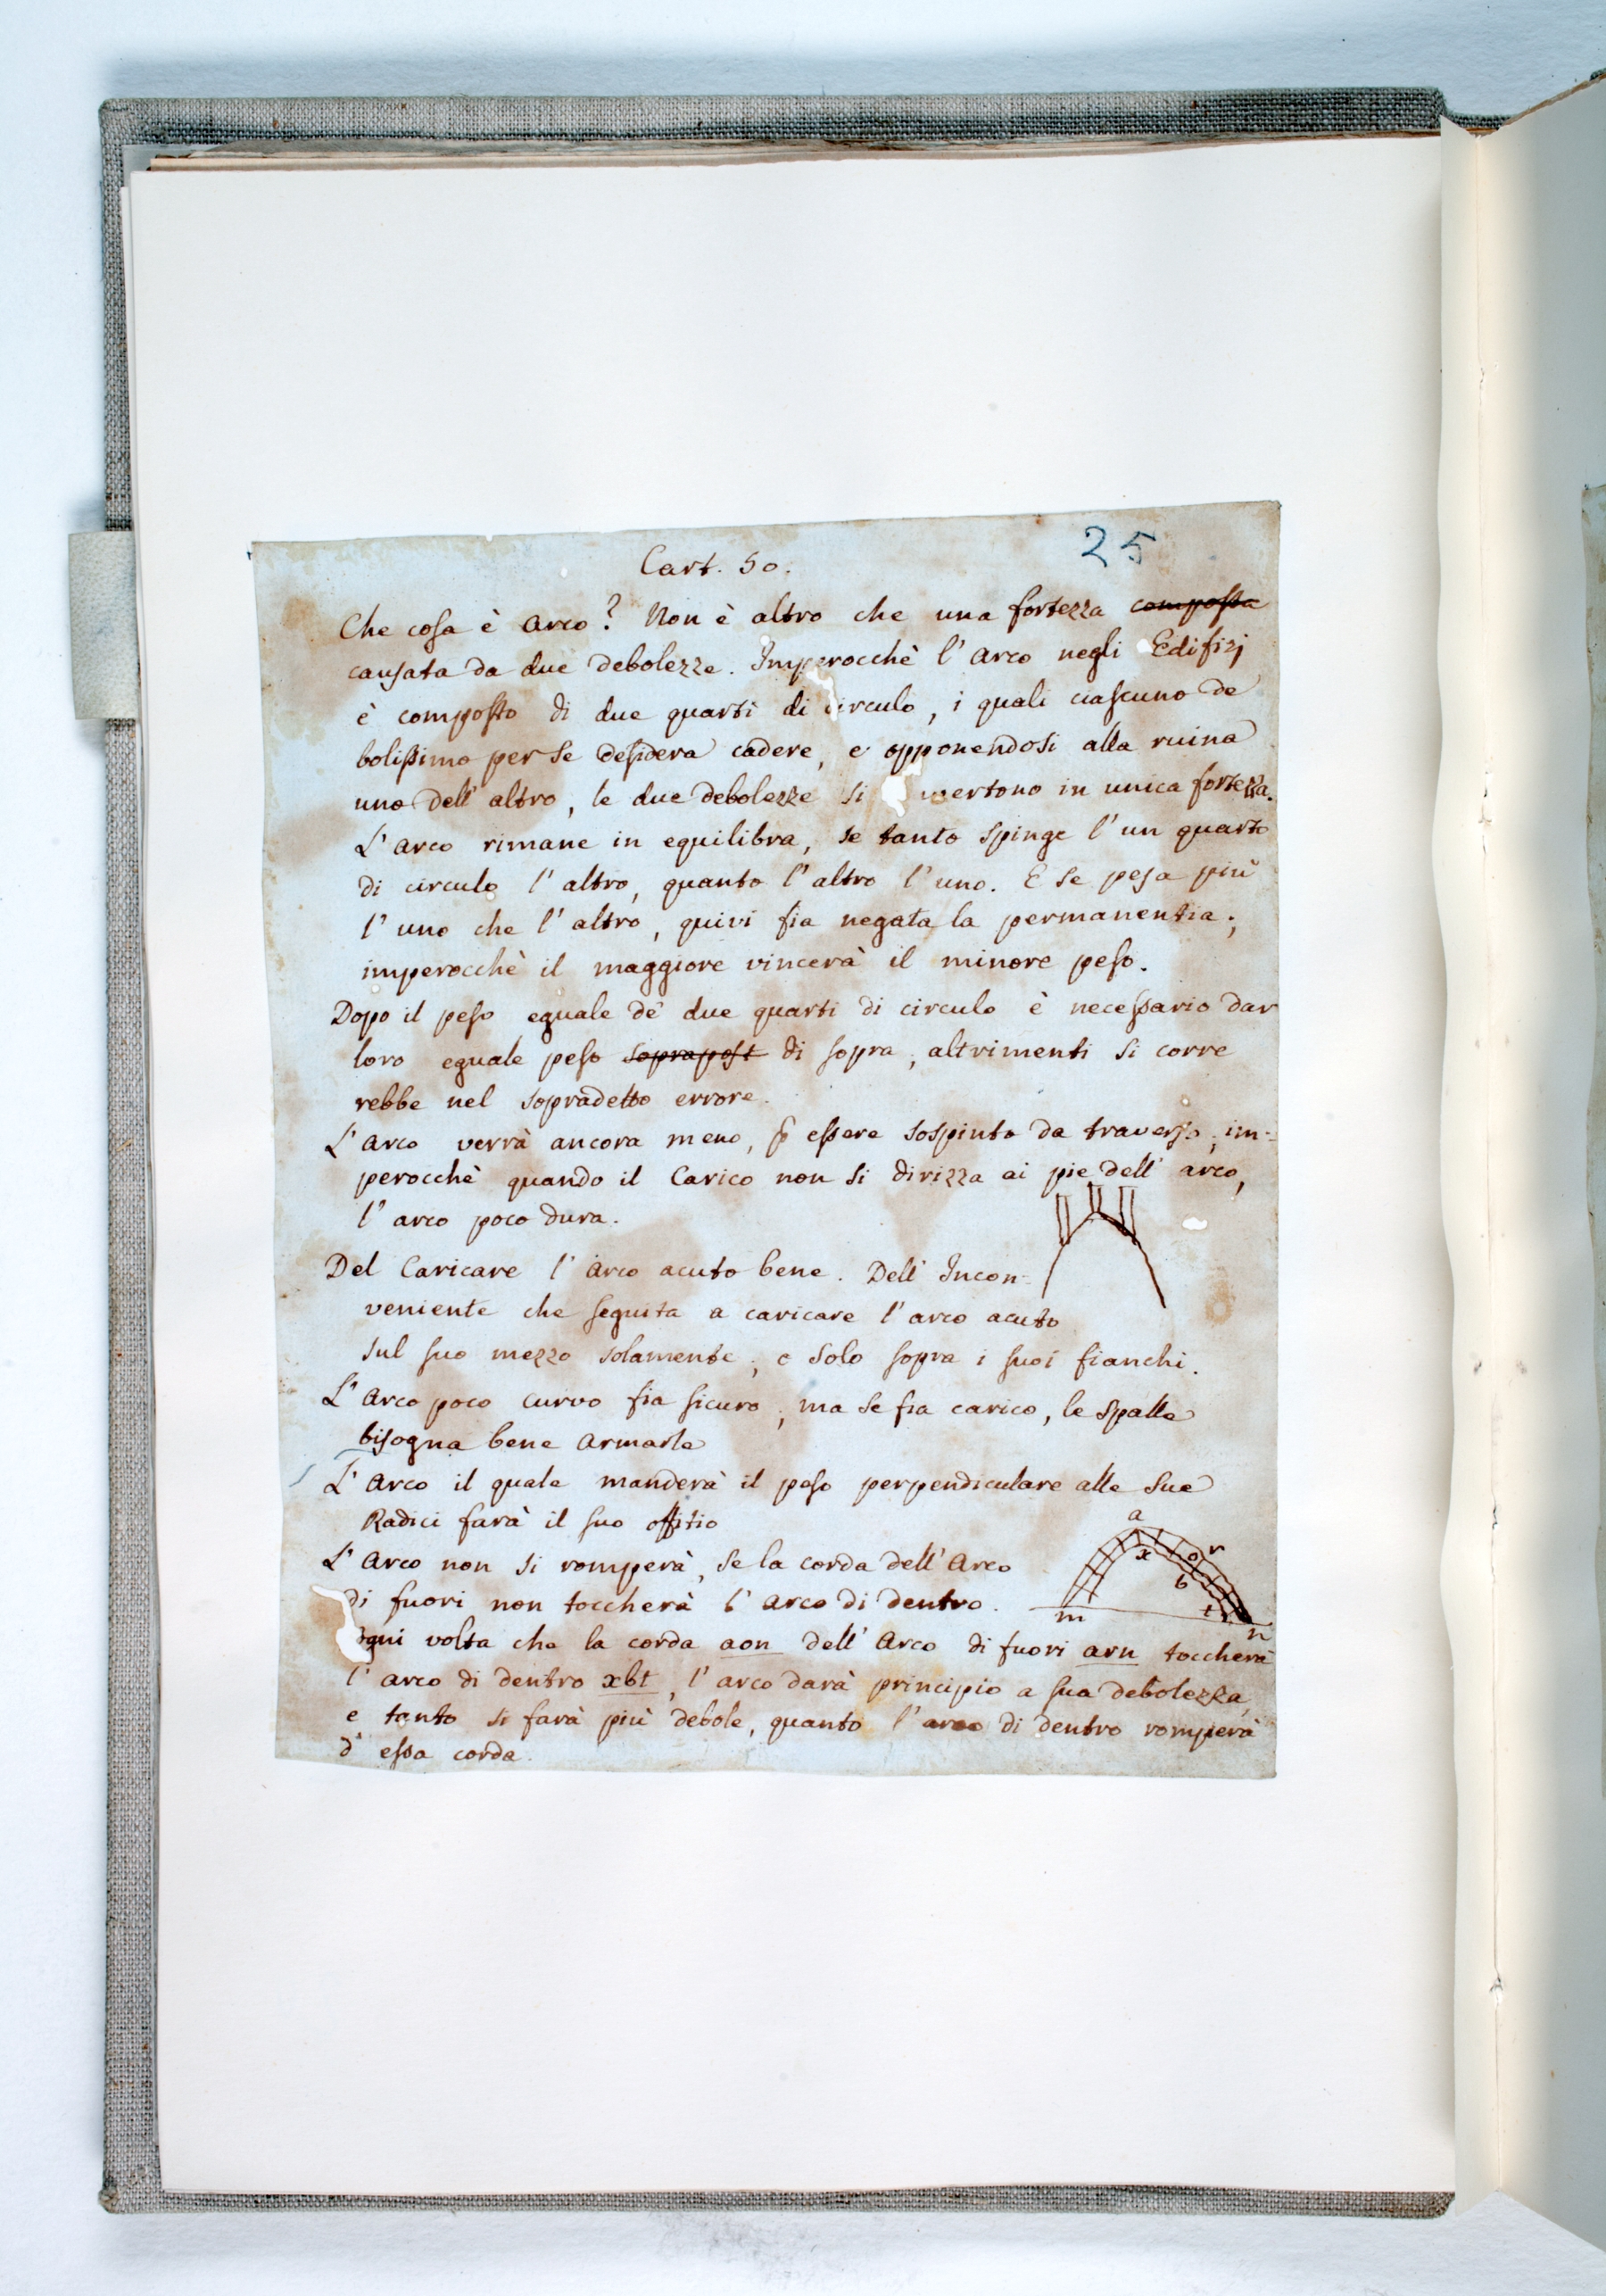 25
Cart. 50.
Che cosa è arco? Non è altro che una fortezza composta
causata da due debolezze. Imperocchè l'arco negli Edifizj
è composto di due quarti di circulo, i quali ciascuno de
bolissimo per se desidera cadere, e opponendosi alla ruina
uno dell'altro, le due debolezze si wertono in unica fortezza.
L'arco rimane in equilibra, se tanto spinge l'un quarto
di circulo l'altro, quanto l'altro l'uno. E se pesa più
l'uno che l'altro, quivi fia negata la permanentia;
imperocchè il maggiore vincerà il minore peso.
Dopo il peso eguale de' due quarti di circulo è necessario dar
loro eguale peso soprapost di sopra, altrimenti si corre
rebbe nel sopradetto errore.
L'arco verrà ancora meno, p essere sospinto da traverso, im-
perocchè quando il Carico non si dirizza ai pie dell'arco,
l'arco poco dura.
Del Caricare l'arco acuto bene. Dell'Incon-
veniente che seguita a caricare l'arco acuto
sul suo mezzo solamente, e solo sopra i suoi fianchi.
L'Arco poco curvo fia sicuro, ma se fia carico, le spalle
bisogna bene armarle
L'arco il quale manderà il peso perpendiculare alle sue
Radici farà il suo offitio
L'Arco non si romperà, se la corda dell'Arco
di fuori non toccherà l'arco di dentro.
ogni volta che la corda aon dell'Arco di fuori arn toccherà
l'arco di dentro xbt, l'arco darà principio a sua debolezza,
e tanto si farà più debole, quanto l'arco di dentro romperà
d'essa corda.
a
x
o
r
b
m
t
n